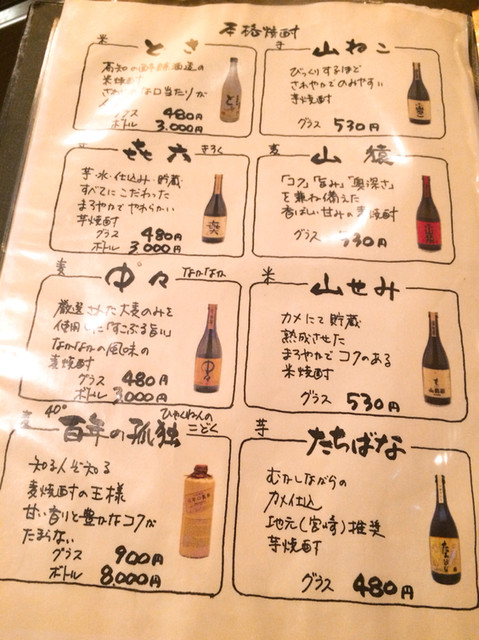 本格焼酎
米 とさ
高知の酔鯨酒造の
米焼酎
さわやかな口当たりが
グラス 480円
ボトル 3,000円
芋 山ねこ
びっくりするほど
さわやかでのみやすい
芋焼酎
グラス 530円
㐂六 きろく
芋・水・仕込み・貯蔵
すべてにこだわった
まろやかでやわらかい
芋焼酎
グラス 480円
ボトル 3,000円
麦 山猿
「コク」「旨み」「奥深さ」
を兼ね備えた
香ばしい甘みの麦焼酎
グラス 530円
麦 中々 なかなか
厳選させた大麦のみを
使用した「すこぶる旨い」
なかなかの風味の
麦焼酎
グラス 480円
ボトル 3,000円
米 山せみ
カメにて貯蔵
熟成させた
まろやかでコクのある
米焼酎
グラス 530円
麦 40° 百年の孤独 ひゃくねんのこどく
知る人ぞ知る
麦焼酎の王様
甘い香りと豊かなコクが
たまらない
グラス 900円
ボトル 8,000円
芋 たちばな
むかしながらの
カメ仕込
地元(宮崎)推奨
芋焼酎
グラス 480円